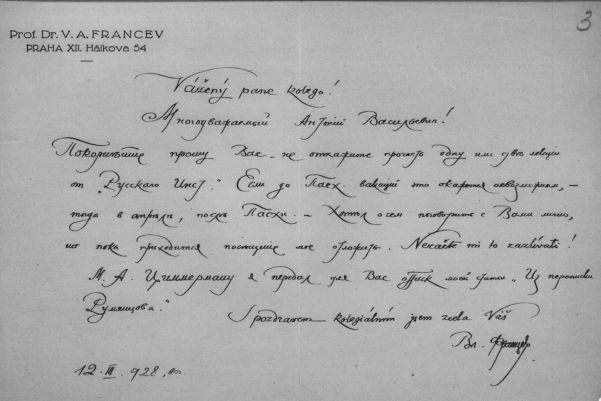 3
Prof. Dr. V. A. FRANCEV
PRAHA XII. Hálkova 54
Vážený pane kolego!
Многоуважаемый Антоній Васильевич!
Покорнѣйше прошу Вас – не откажите прочесть одну или двѣ лекціи
от „Русскаго Инст." Если до Пасх. вакацій это окажется невозможным, –
тогда в апрѣлѣ, послѣ Пасхи. – Хотѣл о сем поговорить с Вами лично,
но пока приходится посѣщеніе мое отложить. Neračte mi to zazlívati!
М. А. Циммерману я передал для Вас оттиск моей статьи „Из переписки
Румянцова."
S pozdravem kolegiálním jsem zcela Váš
Вл. Францев
12. III. 928.